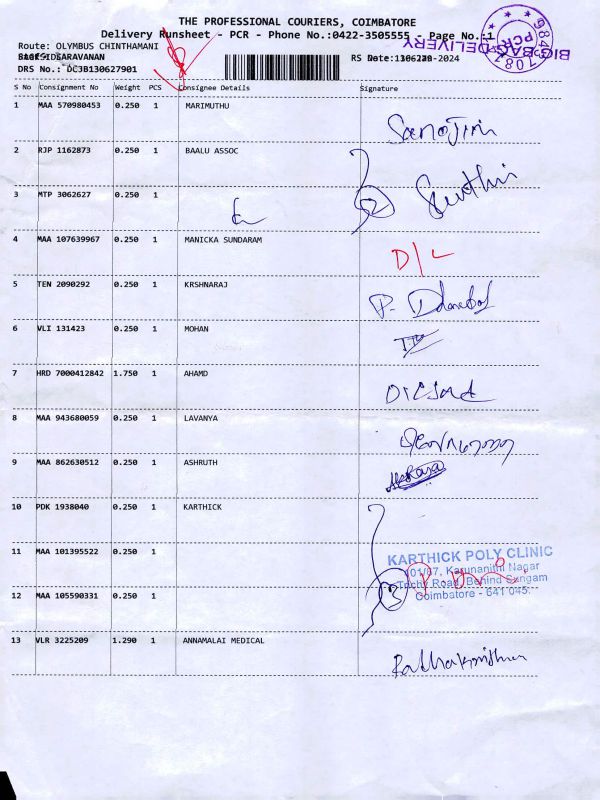 THE PROFESSIONAL COURIERS, COIMBATORE
Delivery Runsheet - PCR - Phone No.:0422-3505555 - Page No.:1
Route: OLYMBUS CHINTHAMANI
SARAVANAN
DRS No.: DCJB130627901
BIG BAG DELIVERY
PCR
S No Consignment No Weight PCS Consignee Details Signature
1 MAA 570980453 0.250 1 MARIMUTHU
2 RJP 1162873 0.250 1 BAALU ASSOC
3 MTP 3062627 0.250 1
4 MAA 107639967 0.250 1 MANICKA SUNDARAM D/L
5 TEN 2090292 0.250 1 KRSHNARAJ
6 VLI 131423 0.250 1 MOHAN
7 HRD 7000412842 1.750 1 AHAMD
8 MAA 943680059 0.250 1 LAVANYA
9 MAA 862630512 0.250 1 ASHRUTH
10 PDK 1938040 0.250 1 KARTHICK
11 MAA 101395522 0.250 1
KARTHICK POLY CLINIC
101/67, Karunanithi Nagar
Trichy Road, Behind Sungam
Coimbatore - 641 045.
12 MAA 105590331 0.250 1
13 VLR 3225209 1.290 1 ANNAMALAI MEDICAL